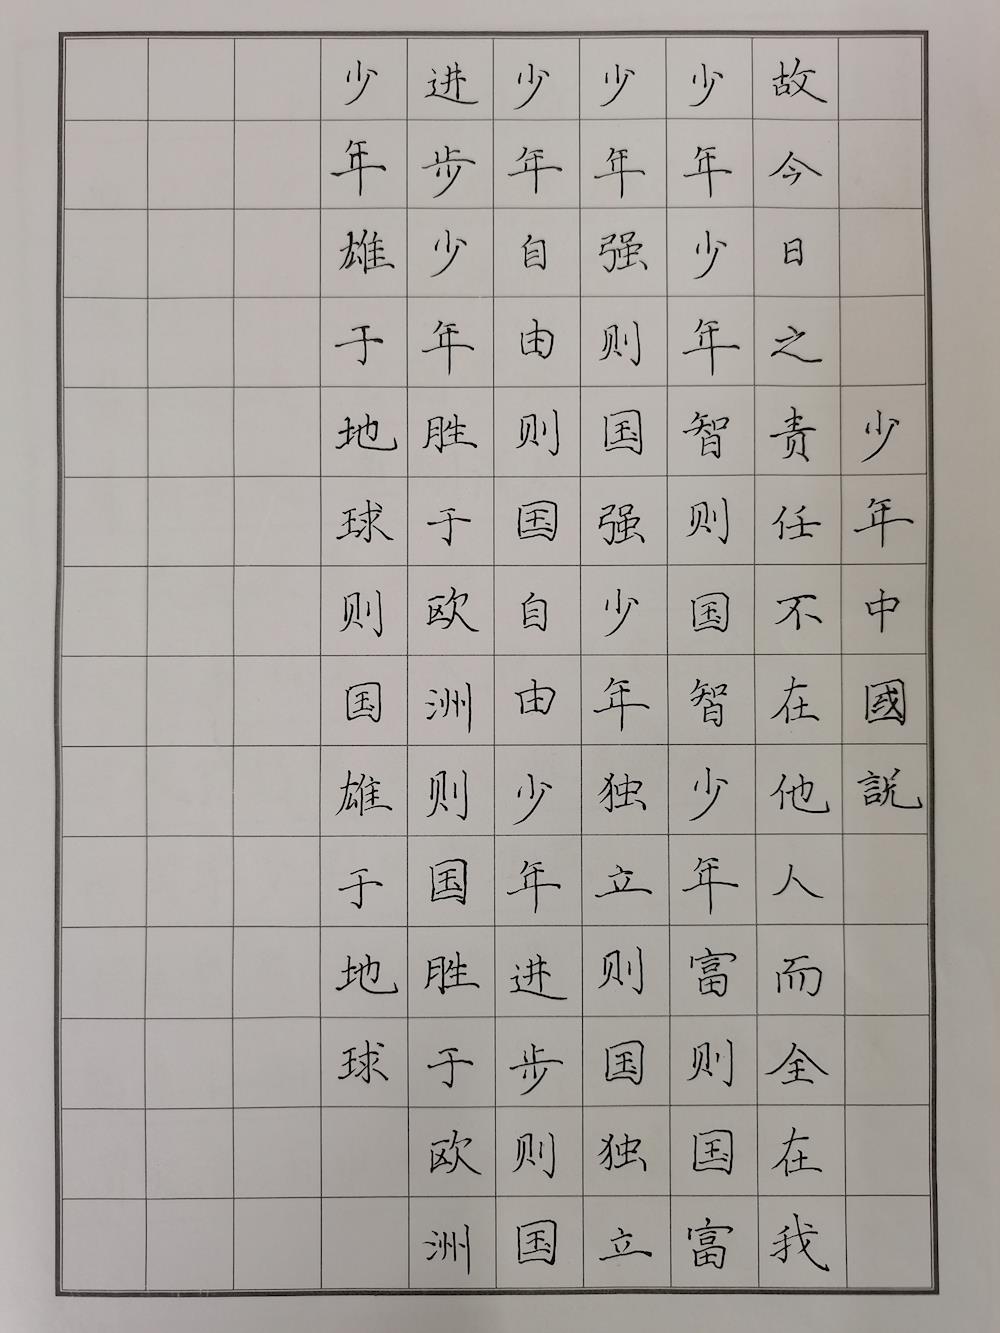 少年中國説
故今日之责任不在他人而全在我
少年少年智则国智少年富则国富
少年强则国强少年独立则国独立
少年自由则国自由少年进步则国
进步少年胜于欧洲则国胜于欧洲
少年雄于地球则国雄于地球